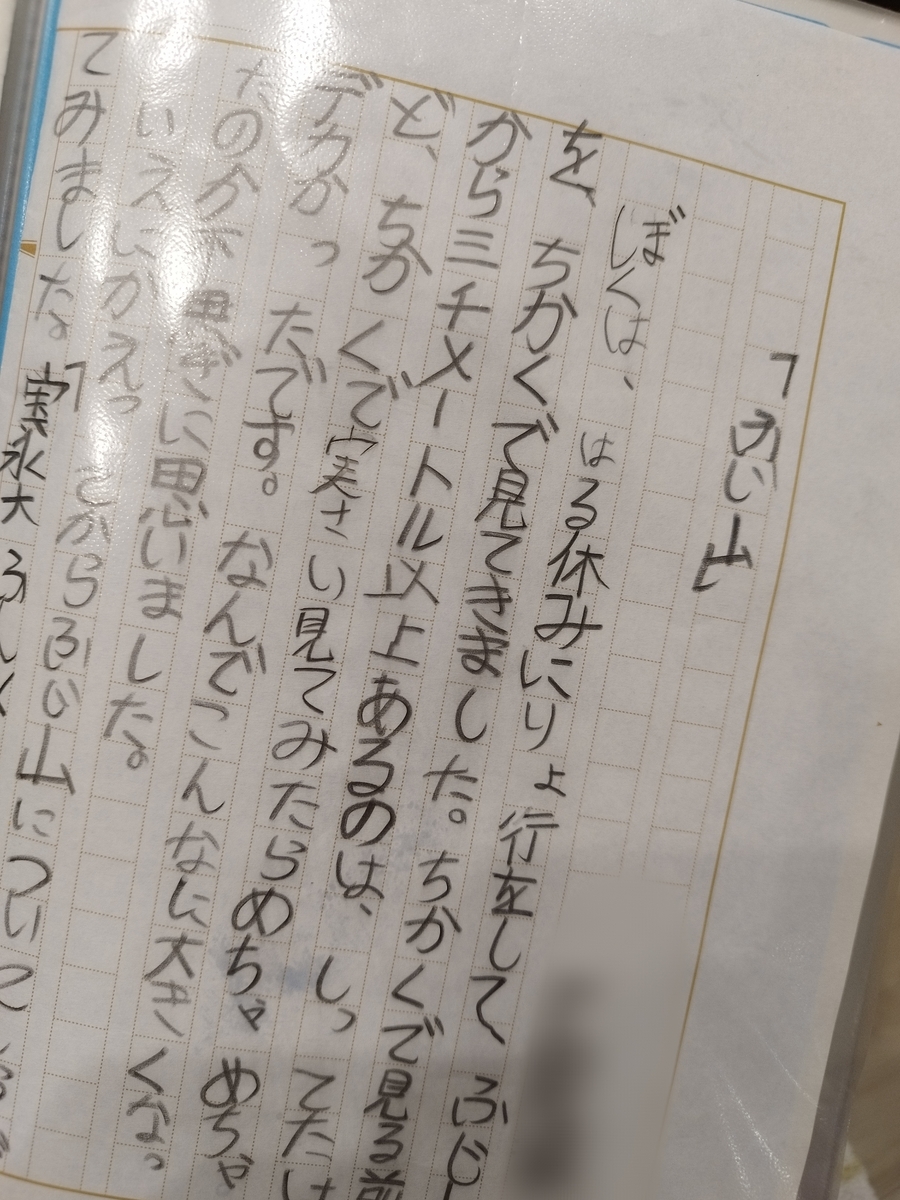 「ふじ山
ぼくは、はる休みにりょ行をして、ふじ
を、ちかくで見てきました。ちかくで見る前
から三チメートル以上あるのは、しってたけ
ど、ちかくで実さい見てみたらめちゃめちゃ
デカかったです。なんでこんなに大きくなっ
たのか不思ぎに思いました。
いえにかえっこからふじ山について
てみました。「実永大ふん